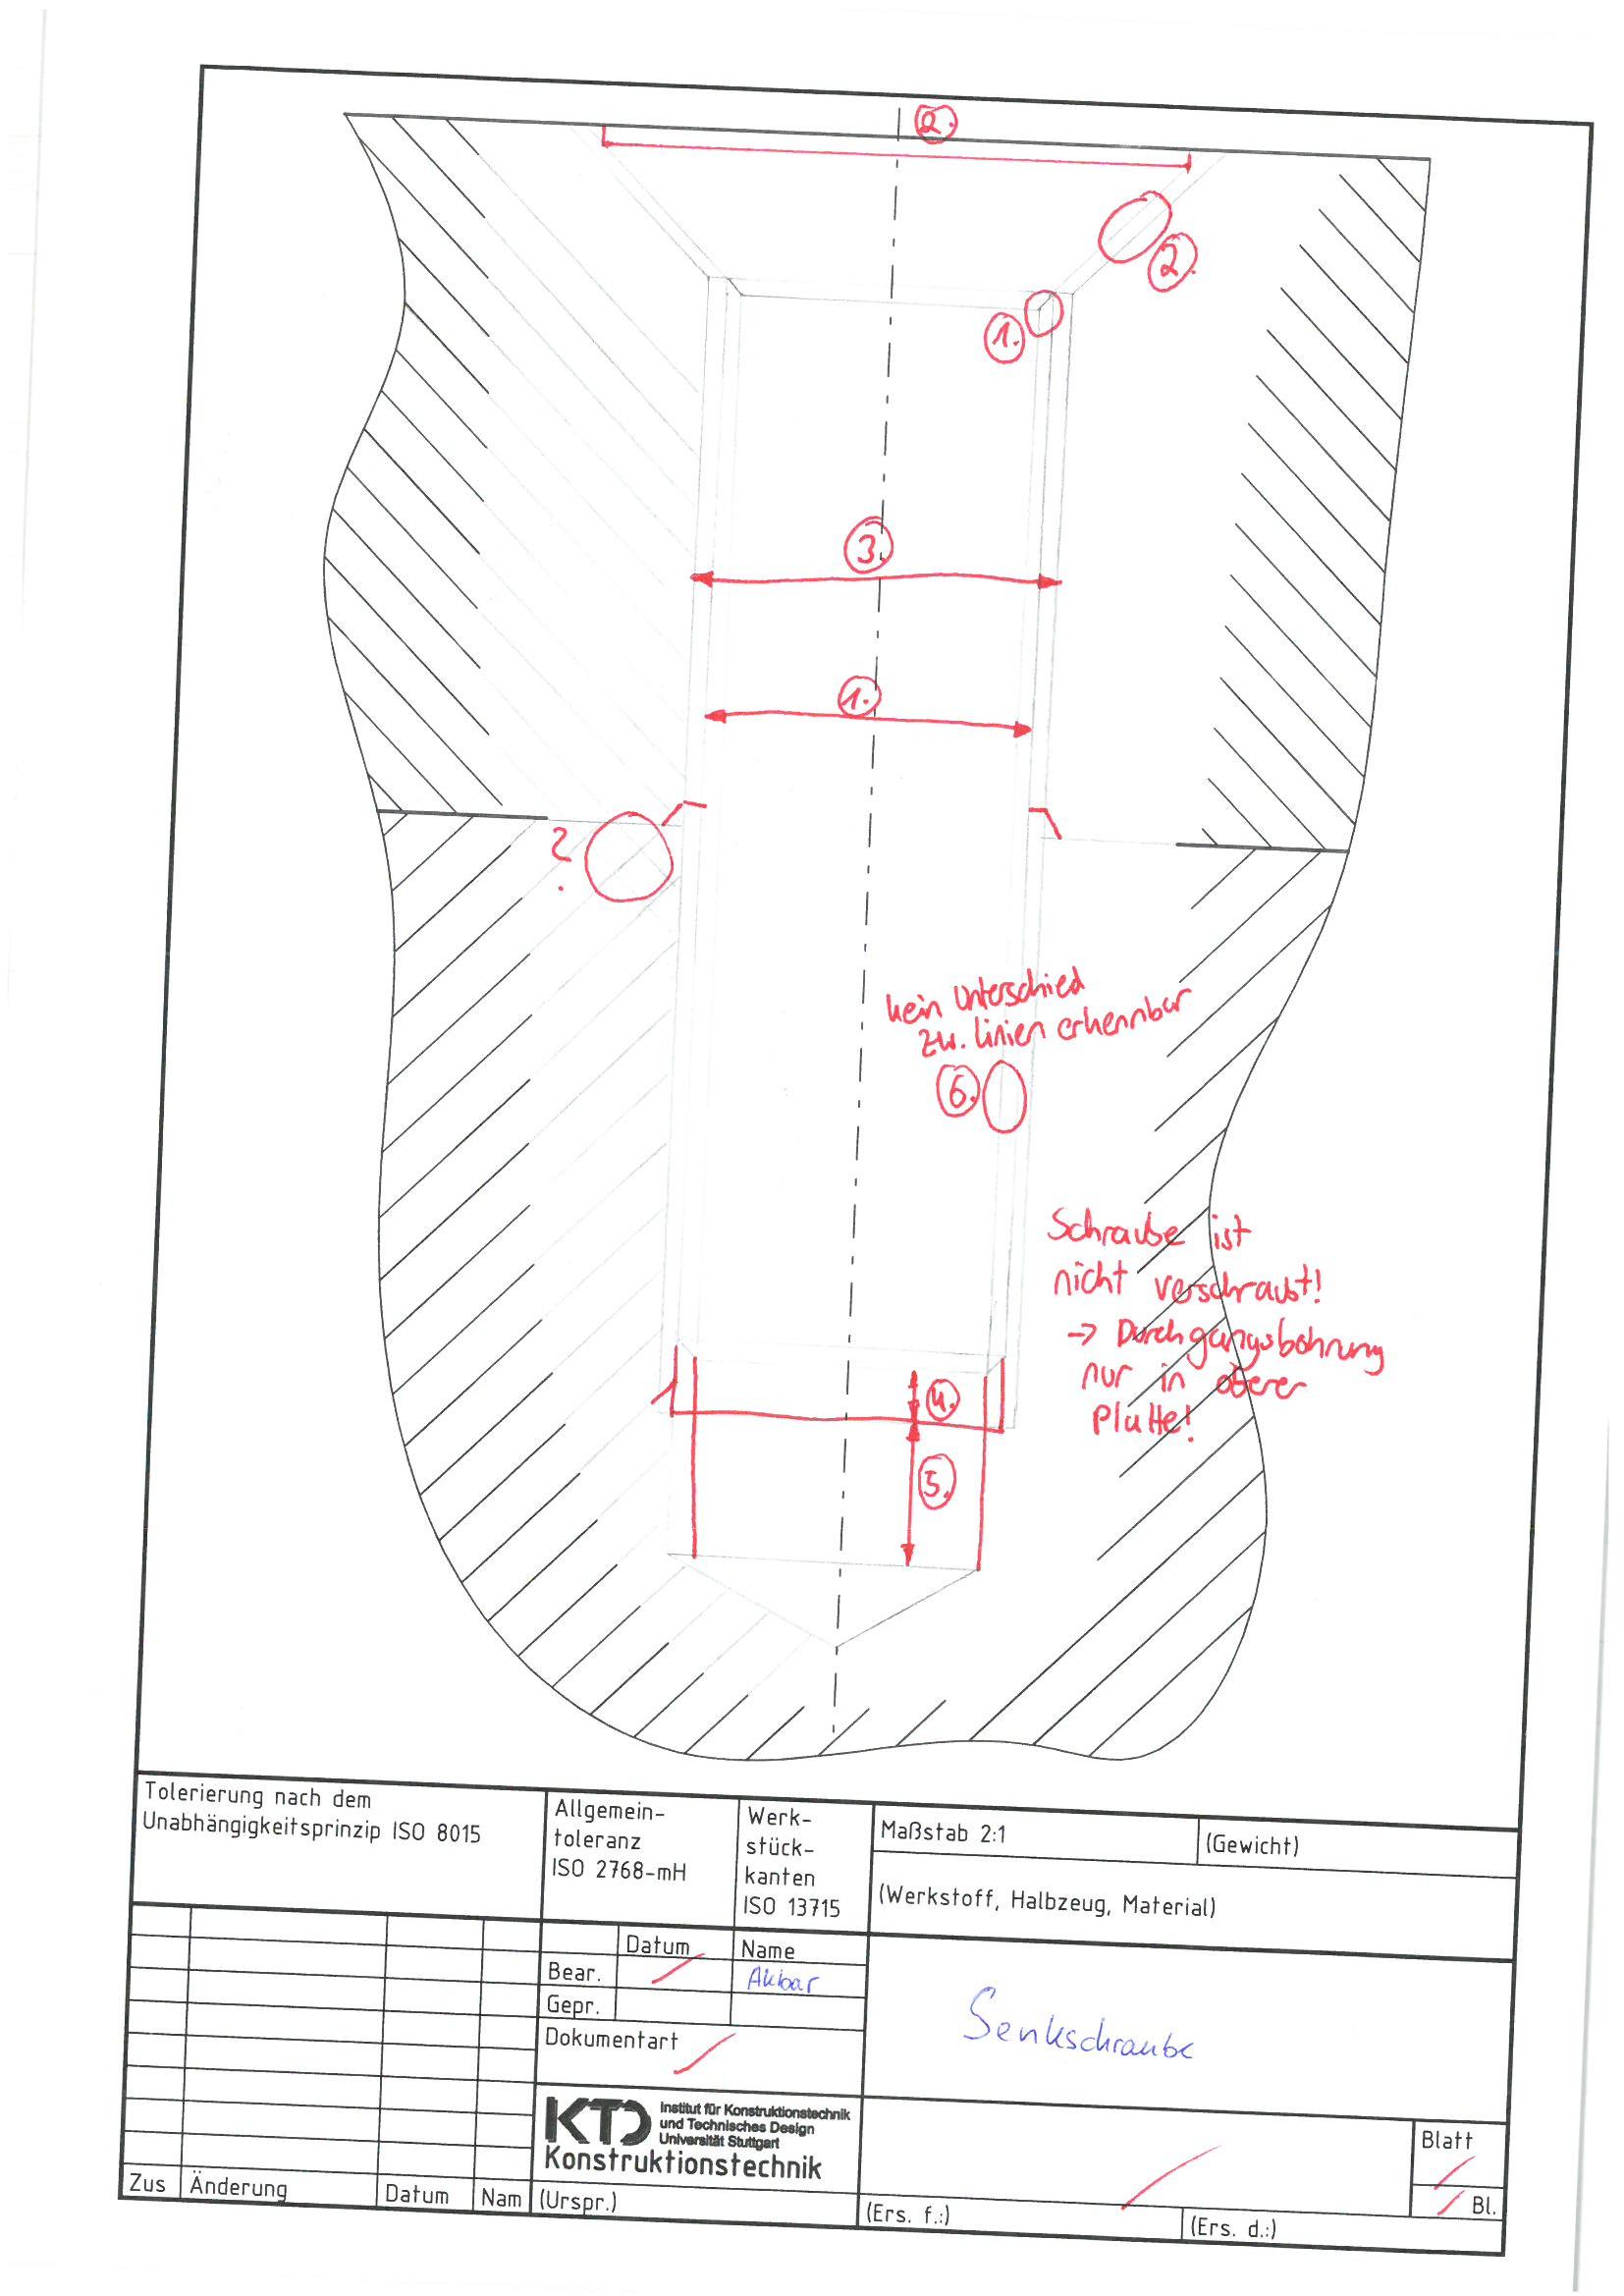 2.
2.
1.
3.
1.
?
kein Unterschied
zw. linien erkennbar
6.
Schraube ist
nicht verschraubt!
-> Durchgangsbohrung
nur in oberer
Platte!
4.
5.
Tolerierung nach dem
Unabhängigkeitsprinzip ISO 8015
Allgemein-
toleranz
ISO 2768-mH
Werk-
stück-
kanten
ISO 13715
Maßstab 2:1
(Gewicht)
(Werkstoff, Halbzeug, Material)
Datum
Name
Bear.
Akbar
Gepr.
Dokumentart
Senkschraube
KTD
Institut für Konstruktionstechnik
und Technisches Design
Universität Stuttgart
Konstruktionstechnik
Blatt
Bl.
Zus
Änderung
Datum
Nam
(Urspr.)
(Ers. f.:)
(Ers. d.:)